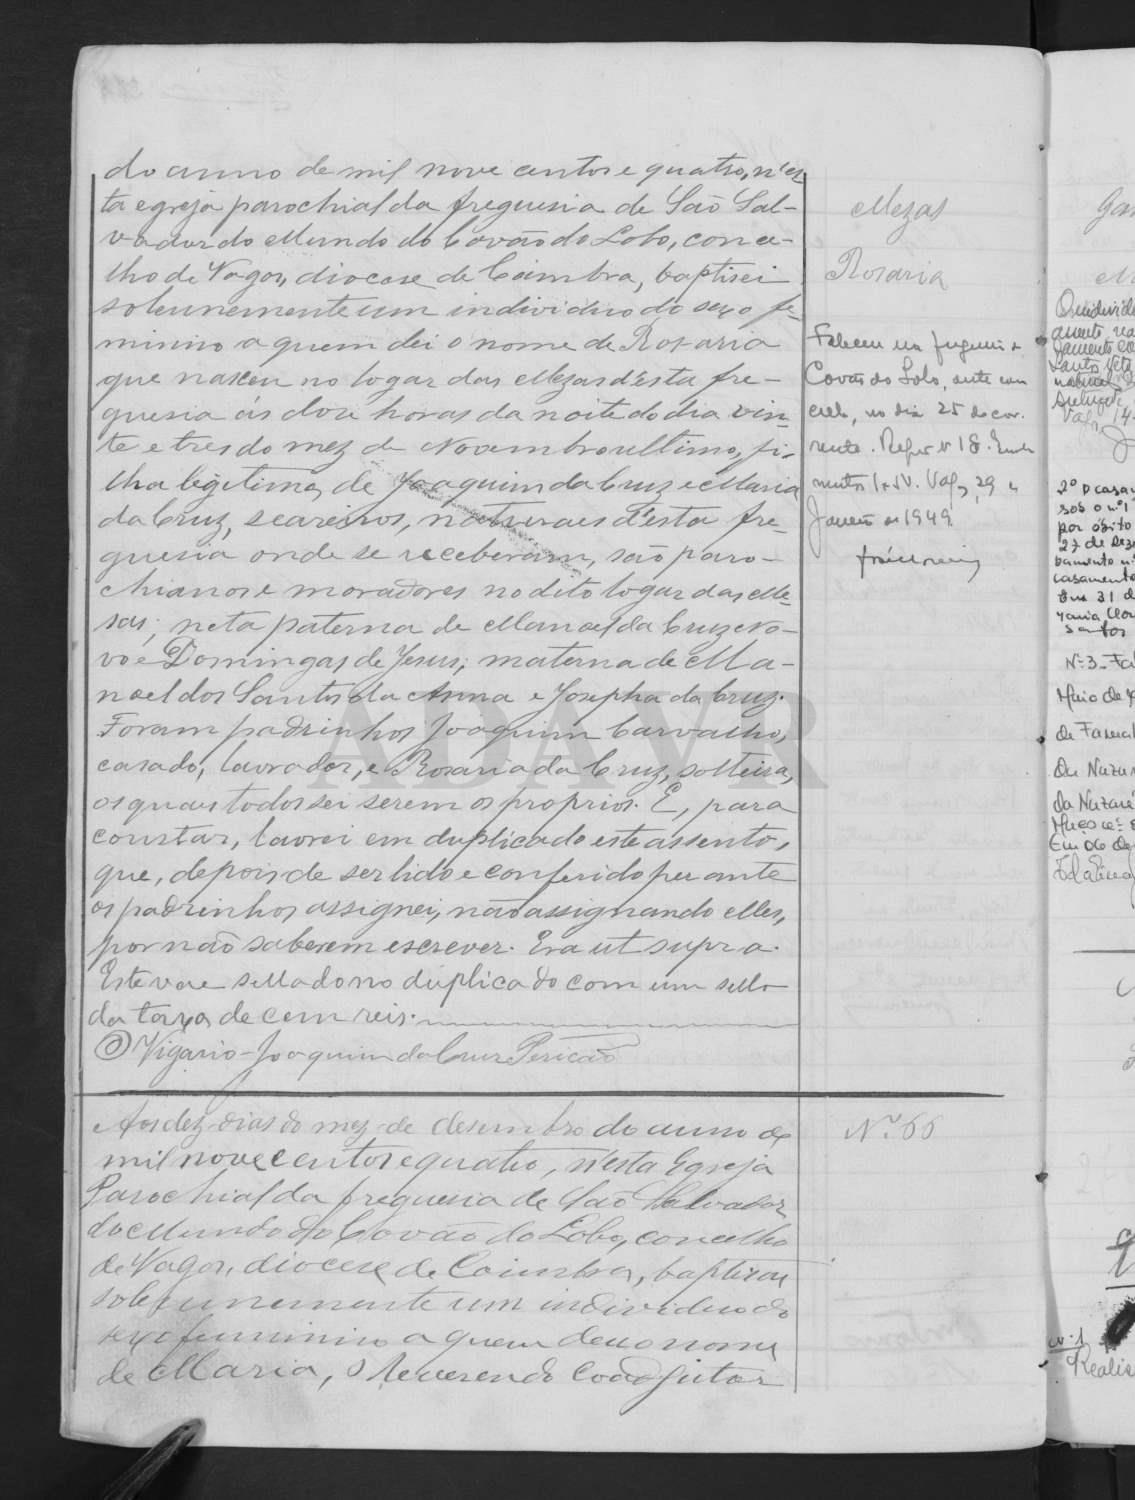 do anno de mil nove centos e quatro, n'es-
ta egreja parochial da freguesia de São Sal-
vador do Mundo do Covão do Lobo, conce-
lho de Vagos, diocese de Coimbra, baptisei
solennemente um individuo do sexo fe-
minino a quem dei o nome de Rosaria
que nasceu no logar das Mezas d'esta fre-
guesia ás doze horas da noite do dia vin-
te e tres do mez de Novembro ultimo, fi-
lha legitima, de Joaquim da Cruz e Maria
da Cruz, seareiros, naturaes d'esta fre-
guesia onde se receberam, são paro-
chianos e moradores no dito logar das Me-
sas; neta paterna de Manoel da Cruz e No-
vo e Domingas de Jesus; materna de Ma-
noel dos Santos da Anna e Josepha da Cruz.
Foram padrinhos Joaquim Carvalho,
casado, lavrador, e Rosaria da Cruz, solteira,
os quais todos sei serem os proprios. E, para
constar, lavrei em duplicado este assento,
que, depois de ser lido e conferido perante
os padrinhos assignei, não assignando elles,
por não saberem escrever. Era ut supra.
Este vae sellado no duplicado com um sello
da taxa de cem reis.
O Vigario - Joaquim da Cruz Pericão
Mezas
Rosaria
Faleceu na freguesia
Covão do Lobo, este con
celho, no dia 25 do cor-
rente. Reg.º n.º 18.
Vagos, 29 de
Janeiro de 1949.
Aos dez dias do mez de desembro do anno de
mil nove centos e quatro, n'esta Egreja
Parochial da freguesia de São Salvador
do Mundo do Covão do Lobo, concelho
de Vagos, diocese de Coimbra, baptisou
solennemente um individuo do
sexo feminino a quem deu o nome
de Maria, o Reverendo Coadjutor
Nº. 66
ADAVR
2º
casamento
Nº 3
Maio de
Realis